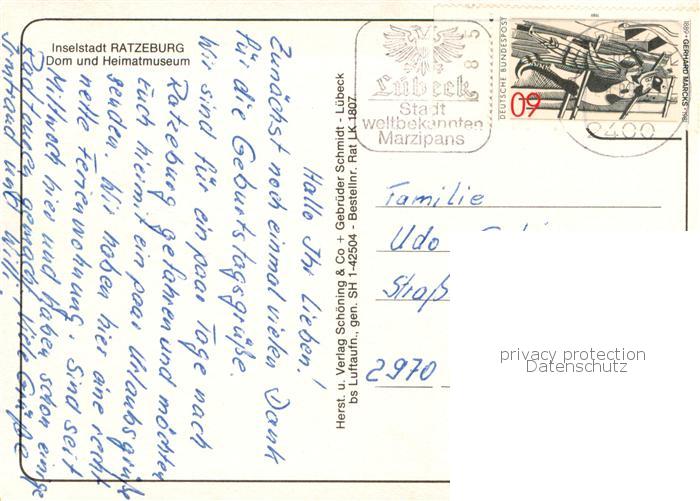 Inselstadt RATZEBURG
Dom und Heimatmuseum
Hallo Ihr Lieben!
Zunächst noch einmal vielen Dank
für die Geburtstagsgrüße.
Wir sind für ein paar Tage nach
Ratzeburg gefahren und möchten
Euch hiermit ein paar Urlaubsgrüße
senden. Wir haben hier eine recht
nette Ferienwohnung. Sind seit
Mittwoch hier und haben schon einige
Radtouren gemacht. Viele Grüße
Irmtraud und Willi
Herst. u. Verlag Schöning & Co + Gebrüder Schmidt - Lübeck
bs Luftaufn., gen. SH 1-42504 - Bestellnr. Rat LK 1807
Lübeck
Stadt
weltbekannten
Marzipans
8 5
2400
DEUTSCHE BUNDESPOST
60
1889 · GERHARD MARCKS · 1981
Familie
Udo
Straß
2970
privacy protection
Datenschutz